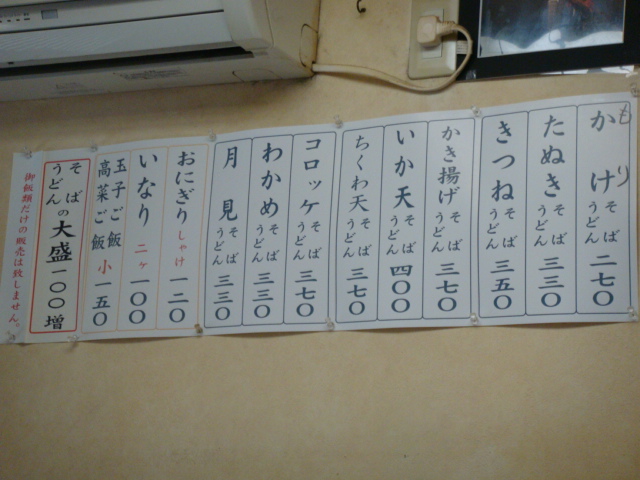 もり
かけ そば うどん 二七〇
たぬき そば うどん 三三〇
きつね そば うどん 三五〇
かき揚げ そば うどん 三七〇
いか天 そば うどん 四〇〇
ちくわ天 そば うどん 三七〇
コロッケ そば うどん 三七〇
わかめ そば うどん 三三〇
月見 そば うどん 三三〇
おにぎり しゃけ 一二〇
いなり 二ヶ 一〇〇
玉子ご飯
高菜ご飯 小 一五〇
そば うどんの大盛一〇〇増
御飯類だけの販売は致しません。